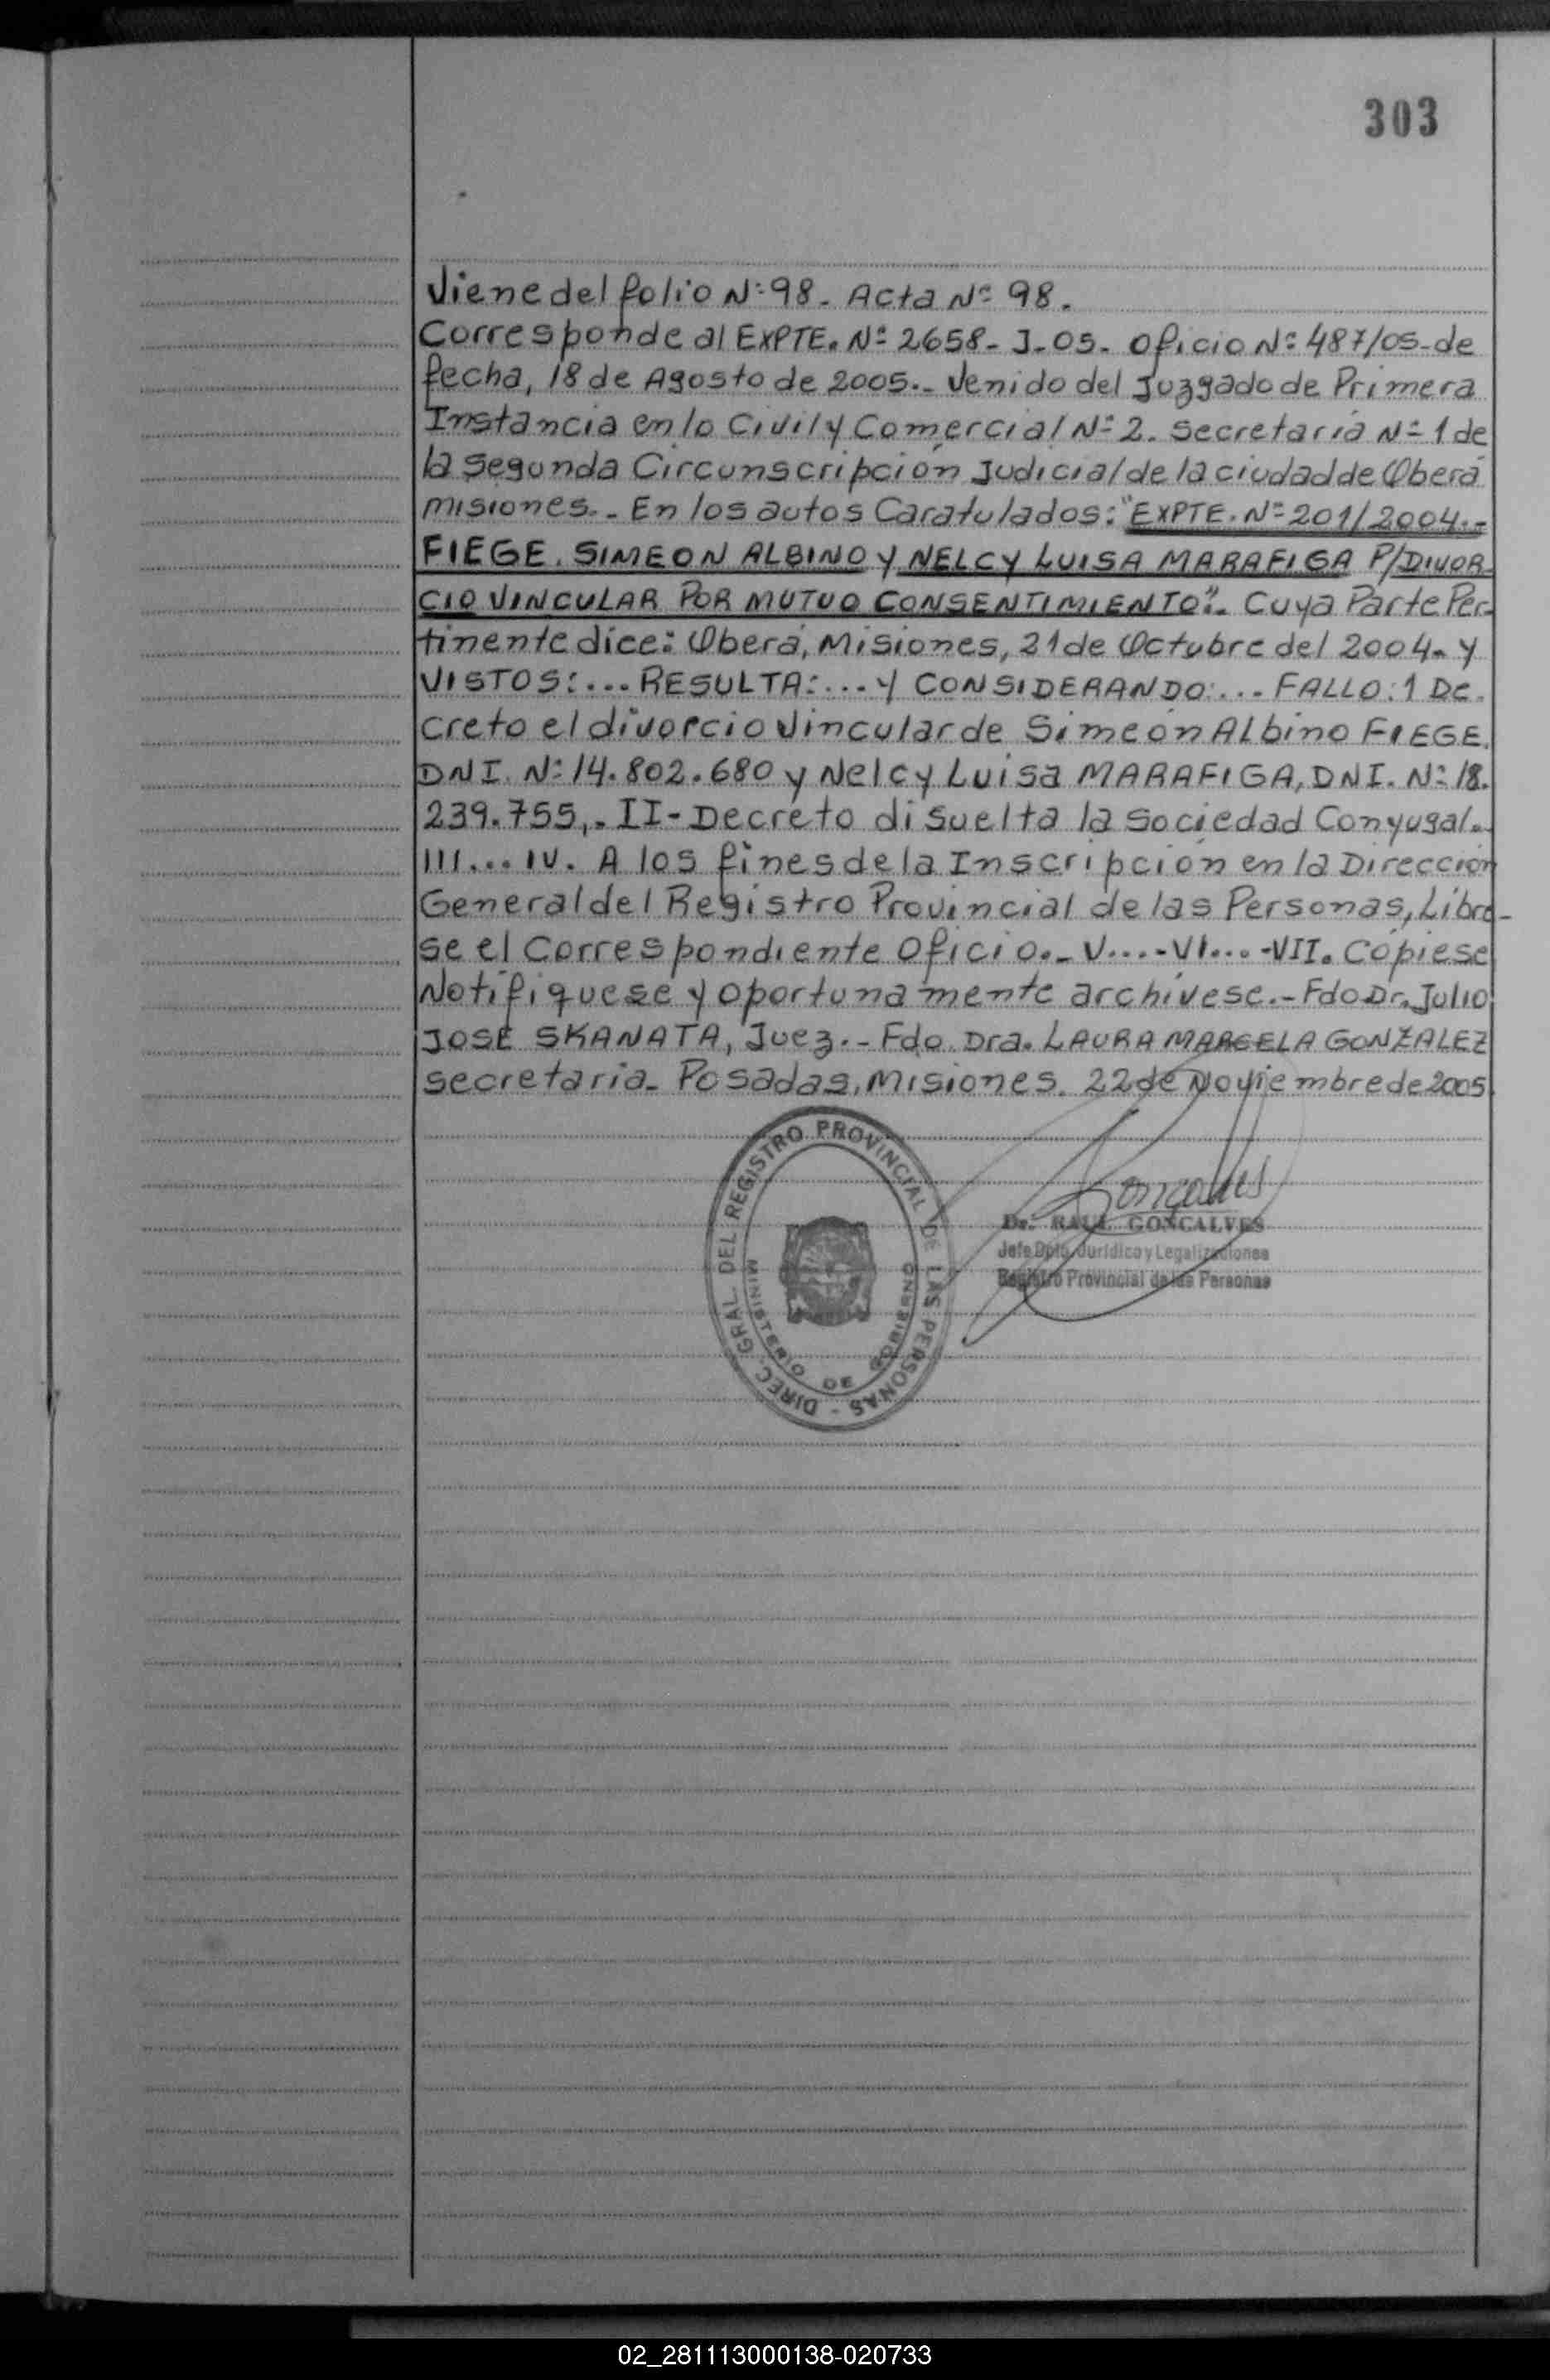 303
Viene del folio Nº 98. Acta Nº 98.
Corresponde al EXPTE. Nº 2658-J-05. Oficio Nº 487/05-de
fecha, 18 de Agosto de 2005.- Venido del Juzgado de Primera
Instancia en lo Civil y Comercial Nº 2. Secretaría Nº 1 de
la Segunda Circunscripción Judicial de la ciudad de Oberá
misiones.- En los autos Caratulados: "EXPTE. Nº 201/2004.-
FIEGE. SIMEON ALBINO y NELCY LUISA MARAFIGA P/DIVOR-
CIO VINCULAR POR MUTUO CONSENTIMIENTO".- Cuya Parte Per-
tinente dice: Oberá, Misiones, 21 de Octubre del 2004. y
VISTOS:... RESULTA:... y CONSIDERANDO:... FALLO: 1 De-
creto el divorcio Vincular de Simeón Albino FIEGE.
DNI. Nº 14.802.680 y Nelcy Luisa MARAFIGA, DNI. Nº 18.
239.755,. II- Decreto disuelta la Sociedad Conyugal.-
III... IV. A los fines de la Inscripción en la Dirección
General del Registro Provincial de las Personas, Líbre-
se el Correspondiente Oficio.- V....-VI....-VII. Cópiese
Notifíquese y oportunamente archívese.- Fdo Dr. Julio
JOSÉ SKANATA, Juez.- Fdo. Dra. LAURA MARCELA GONZALEZ
Secretaria- Posadas, Misiones. 22 de Noviembre de 2005
DIREC. GRAL. DEL REGISTRO PROVINCIAL DE LAS PERSONAS -
MINISTERIO DE GOBIERNO
Goncalves
Dr. RAUL GONCALVES
Jefe Dpto. Jurídico y Legalizaciones
Registro Provincial de las Personas
02_281113000138-020733